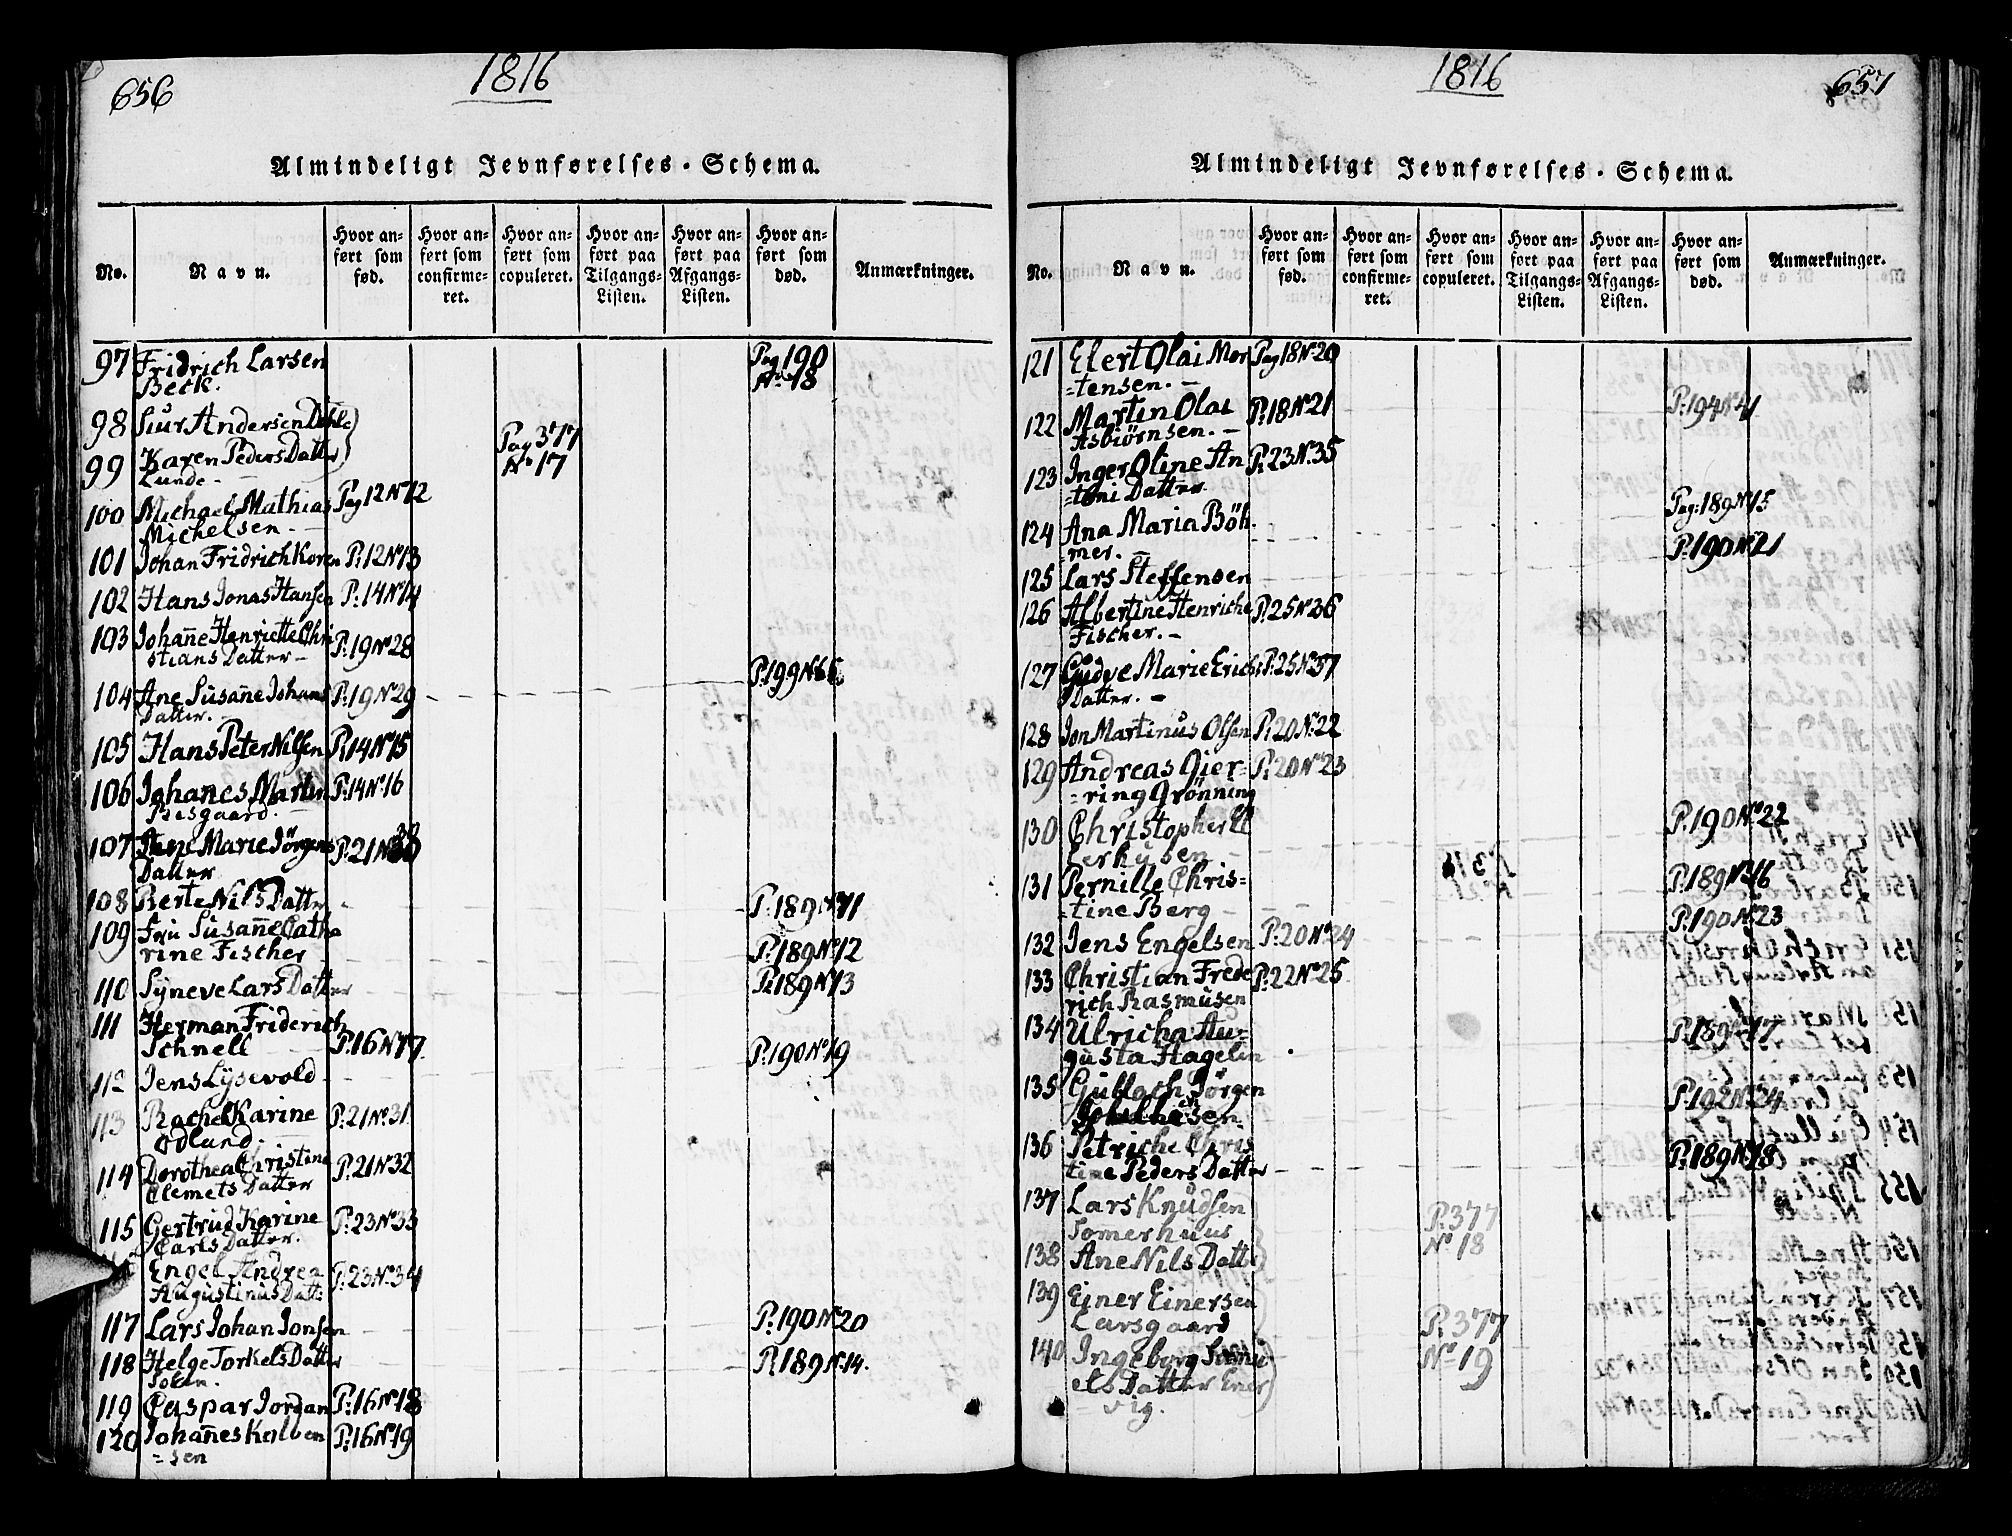 656
1816
Almindeligt Jevnførelses-Schema.
No.
Navn.
Hvor an-
ført som
fød.
Hvor an-
ført som
confirme-
ret.
Hvor an-
ført som
copuleret.
Hvor an-
ført paa
Tilgangs-
Listen.
Hvor an-
ført paa
Afgangs-
Listen.
Hvor an-
ført som
død.
Anmærkninger.
97 Fridrich Larsen Pag 190
Beck. No 18
98 Siur Andersen Dahle Pag 377
99 Karen Peders Datter No 17
Lunde.
100 Michael Mathias Pag 12 No 12
Michelsen.
101 Johan Fridrich Koren P. 12 No 13
102 Hans Jonas Hansen P. 14 No 14
103 Johañe Henriette Chri P. 19 No 28
stians Datter
104 Ane Susañe Johans P. 19 No 29 P. 199 No 66
Datter.
105 Hans Peter Nilsen P. 14 No 15
106 Johanes Martin P. 14 No 16
Risgaard.
107 Ane Marie Jörgens P. 21 No 30
Datter
108 Berte Nils Datter P. 189 No 11
109 Fru Susañe Catha
rine Fischer P. 189 No 12
110 Syneve Lars Datter P. 189 No 13
111 Herman Friderich
Schnell P. 16 No 17
112 Jens Lysevold P. 190 No 19
113 Rachel Karine P. 21 No 31
Odlund.
114 Dorothea Christine P. 21 No 32
Clemets Datter
115 Gertrud Karine P. 23 No 33
Carls Datter.
Engel Andrea P. 23 No 34
Augustinus Datt:
117 Lars Johan Jonsen P. 190 No 20
118 Helge Torkels Datter P. 189 No 14.
119 Caspar Jordan P. 16 No 18
120 Johañes Kalven P. 16 No 19
=sen
1816
657
Almindeligt Jevnførelses-Schema.
No.
Navn.
Hvor an-
ført som
fød.
Hvor an-
ført som
confirme-
ret.
Hvor an-
ført som
copuleret.
Hvor an-
ført paa
Tilgangs-
Listen.
Hvor an-
ført paa
Afgangs-
Listen.
Hvor an-
ført som
død.
Anmærkninger.
121 Elert Olai Mor Pag 18 No 20
=tensen.
122 Martin Olai P. 18 No 21 P. 194 No 41
Asbiörnsen.
123 Inger Oline An P. 23 No 35
=toni Datter
124 Ana Maria Böh Pag: 189 No 15
mer.
125 Lars Steffensen P. 190 No 21
126 Albertine Henriche P. 25 No 36
Fischer.
127 Gudve Marie Erichs P. 25 No 37
Datter.
128 Jon Martinus Olsen P. 20 No 22
129 Andreas Gier= P. 20 No 23
=ring Grönning
130 Christopher El P. 190 No 22
lerhusen
131 Pernille Chris= P. 189 No 16
=tine Berg
132 Jens Engelsen P. 20 No 24 P. 190 No 23
133 Christian Frede P. 22 No 25
rich Rasmusen
134 Ulricha Au= P. 189 No 17
gusta Hagelin
135 Gulloch Jörgen
sen. P. 192 No 24
136 Petriche Chris
tine Peders Datter P. 189 No 18
137 Lars Knudsen P. 377
Somerhuus No 18
138 Ane Nils Datter
139 Einer Einersen
Larsgaard P. 377
140 Ingeborg No 19
els Datter Ener
vig.